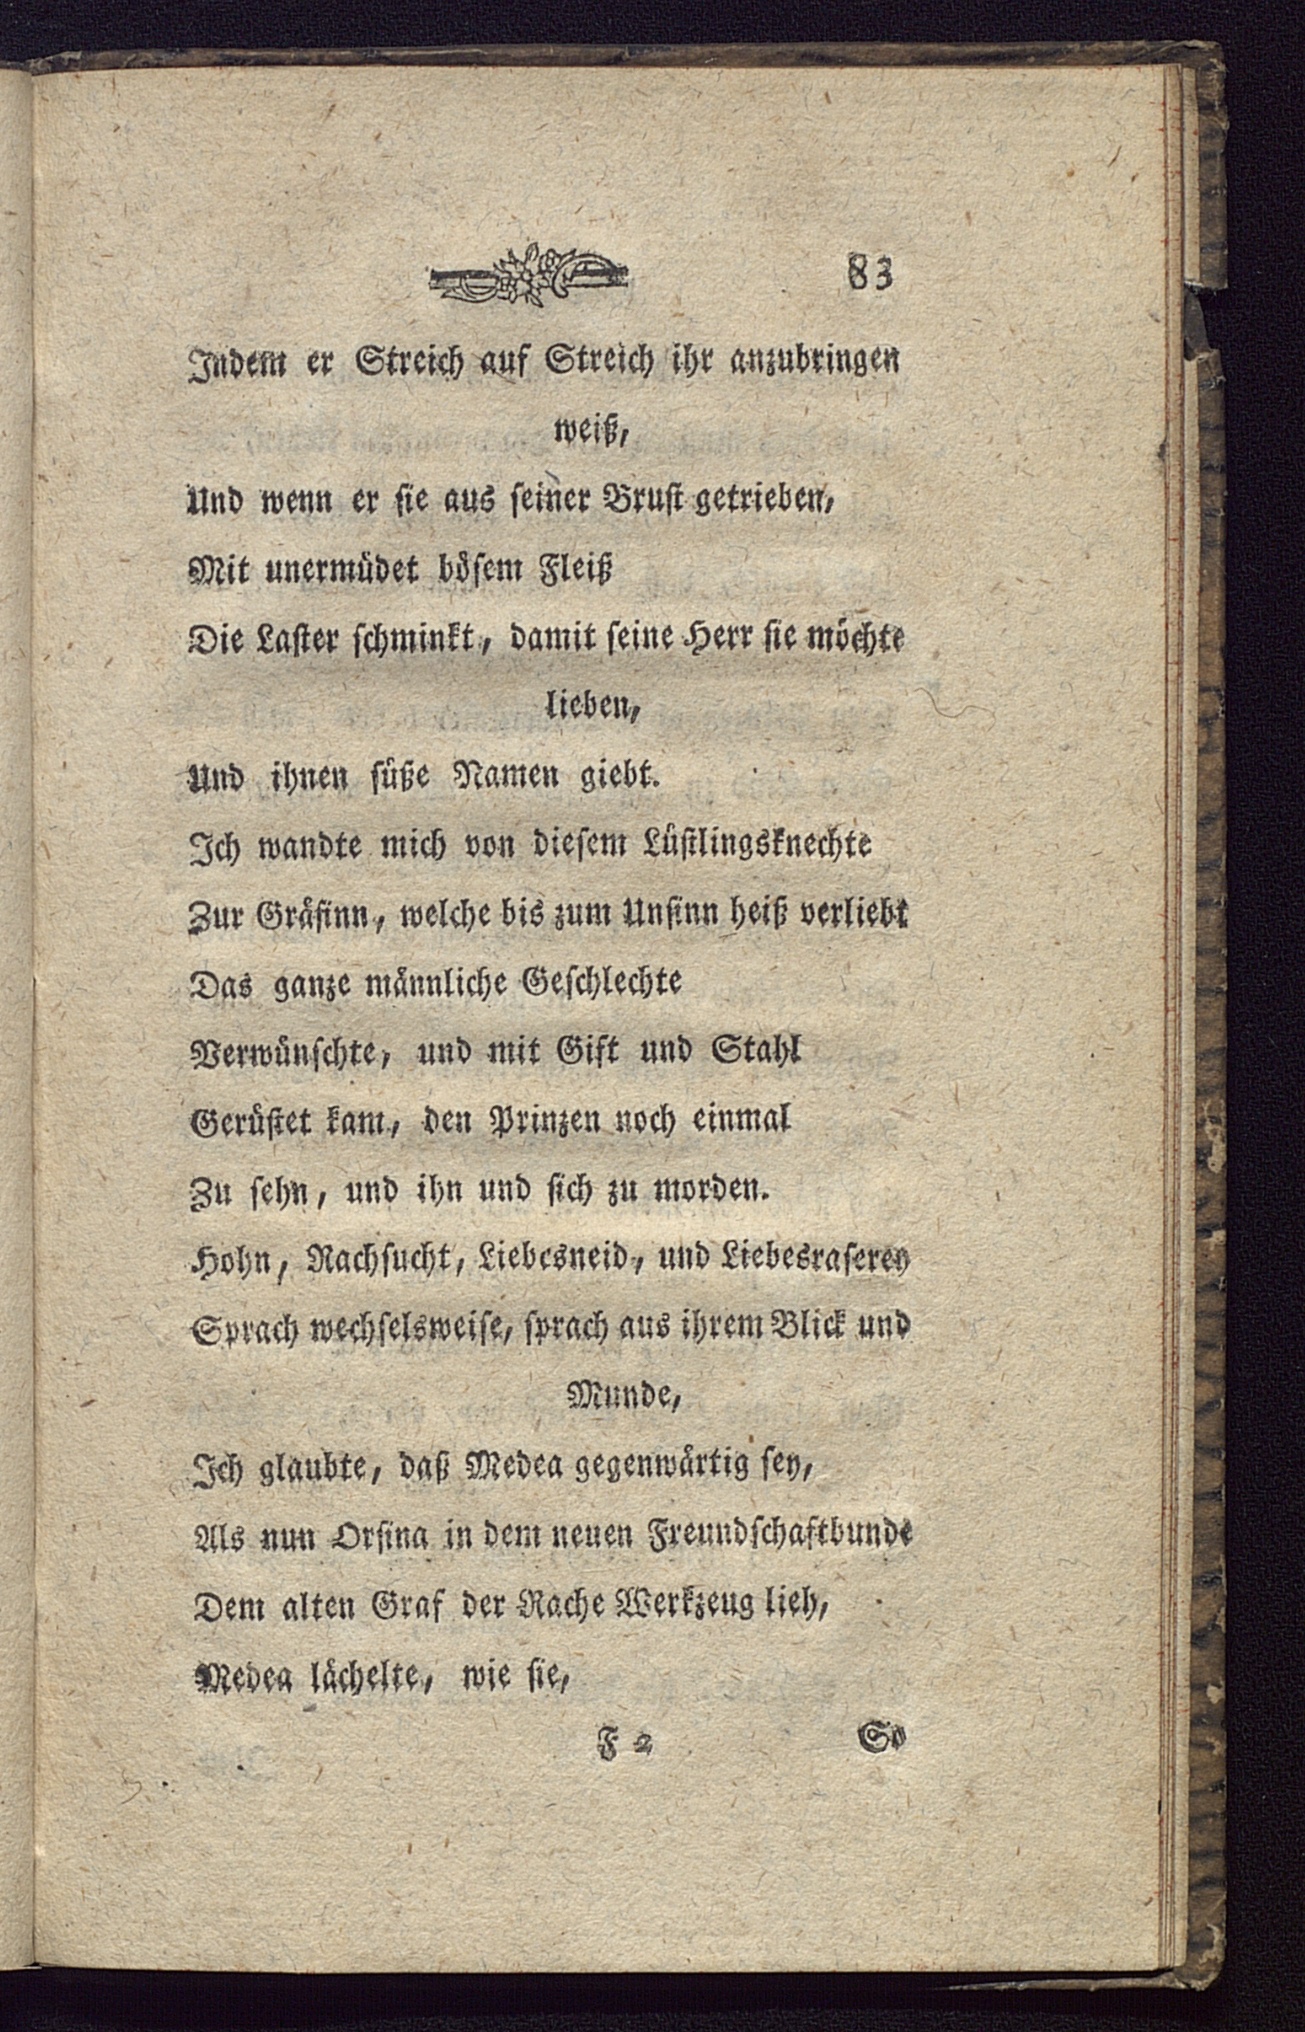 83
Indem er Streich auf Streich ihr anzubringen
weiß,
Und wenn er sie aus seiner Brust getrieben,
Mit unermüdet bösem Fleiß
Die Laster schminkt, damit seine Herr sie möchte
lieben,
Und ihnen süße Namen giebt.
Ich wandte mich von diesem Lüstlingsknechte
Zur Gräfinn, welche bis zum Unsinn heiß verliebt
Das ganze männliche Geschlechte
Verwünschte, und mit Gift und Stahl
Gerüstet kam, den Prinzen noch einmal
Zu sehn, und ihn und sich zu morden.
Hohn, Rachsucht, Liebesneid, und Liebesraserey
Sprach wechselsweise, sprach aus ihrem Blick und
Munde,
Ich glaubte, daß Medea gegenwärtig sey,
Als nun Orsina in dem neuen Freundschaftbunde
Dem alten Graf der Rache Werkzeug lieh,
Medea lächelte, wie sie,
F 2 So